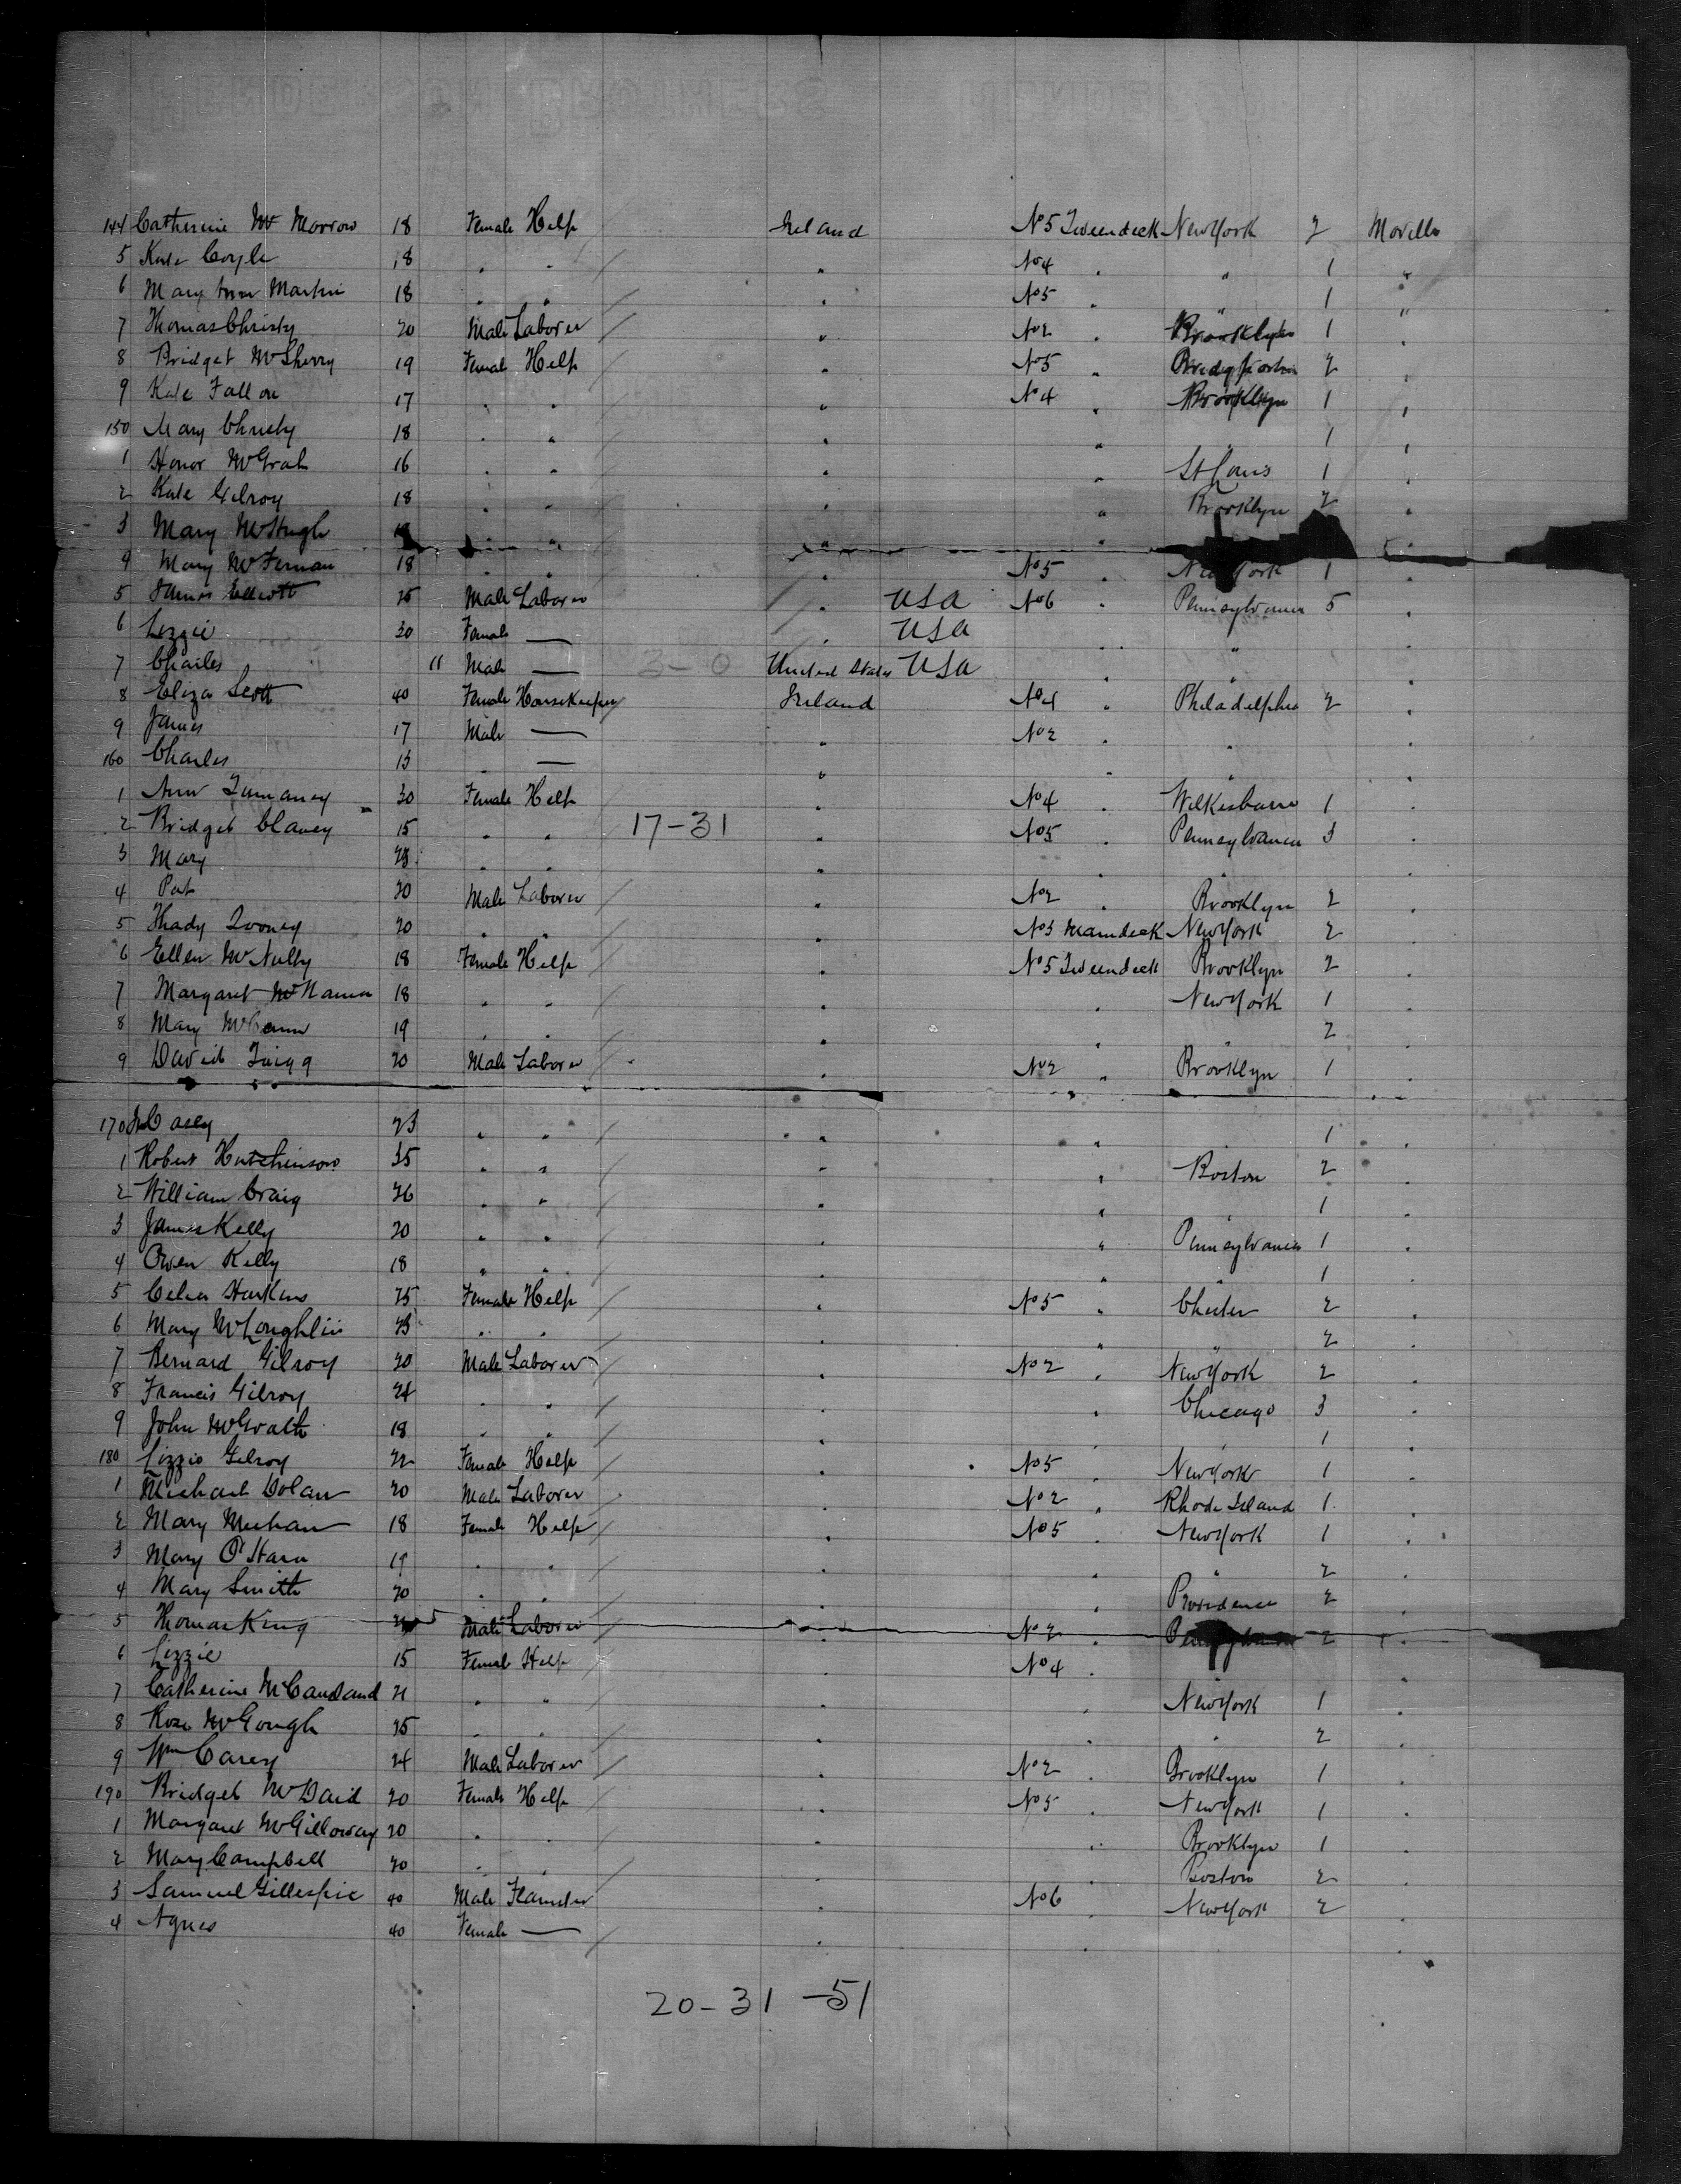 144 Catherine Mc Morrow 18 Female Help Ireland No 5 Tweendeck New York 2 Moville
5 Kate Coyle 18 " " " No 4 " " 1 "
6 Mary Ann Martin 18 " " " No 5 " " 1 "
7 Thomas Christy 20 Male Laborer " No 2 " Brooklyn 1 "
8 Bridget McSherry 19 Female Help " No 5 " Bridgeport 2 "
9 Kate Fallon 17 " " " No 4 " Brooklyn 1 "
150 Mary Christy 18 " " " " 1 "
1 Honor McGrah 16 " " " St Louis 1 "
2 Kate Gilroy 18 " " " " Brooklyn 2 "
3 Mary McHugh " " " " "
4 Mary McTernan 18 " " " No 5 " New York 1 "
5 James Elliott 25 Male Laborer " USA No 6 " Pennsylvania 5 "
6 Lizzie 30 Female — " USA " " "
7 Charles 11 Male — 3-0 United States USA " " "
8 Eliza Scott 40 Female Housekeeper Ireland No 4 " Philadelphia 2 "
9 James 17 Male — " No 2 " " "
160 Charles 13 " — " " " "
1 Ann 30 Female Help " No 4 " Wilkesbarre 1 "
2 Bridget Clancy 15 " " 17-31 " No 5 " Pennsylvania 3 "
3 Mary 23 " " " " " "
4 Pat 20 Male Laborer " No 2 " Brooklyn 2 "
5 Thady 20 " " " No 3 Maindeck New York 2 "
6 Ellen McNulty 18 Female Help " No 5 Tweendeck Brooklyn 2 "
7 Margaret McNamee 18 " " " " New York 1 "
8 Mary McCann 19 " " " " " 2 "
9 David 20 Male Laborer " No 2 " Brooklyn 1 "
170 Casey 23 " " " " 1 "
1 Robert Hutchinson 35 " " " " Boston 2 "
2 William Craig 26 " " " " " 1 "
3 James Kelly 20 " " " " Pennsylvania 1 "
4 Owen Kelly 18 " " " " " 1 "
5 Celia Harkins 25 Female Help " No 5 " Chester 2 "
6 Mary McLoughlin 23 " " " " " 2 "
7 Bernard Gilroy 20 Male Laborer " No 2 " New York 2 "
8 Francis Gilroy 24 " " " " Chicago 3 "
9 John McGrath 18 " " " " " 1 "
180 Lizzie Gilroy 22 Female Help " No 5 " New York 1 "
1 Michael Dolan 20 Male Laborer " No 2 " Rhode Island 1 "
2 Mary Meehan 18 Female Help " No 5 " New York 1 "
3 Mary O'Hara 19 " " " " " 2 "
4 Mary Smith 20 " " " " Providence 2 "
5 Thomas King Male Laborer " No 2 " Pennsylvania 2 "
6 Lizzie 15 Female Help " No 4 " "
7 Catherine McCausland 21 " " " " New York 1 "
8 Rose McGough 25 " " " " " 2 "
9 Wm Carey 24 Male Laborer " No 2 " Brooklyn 1 "
190 Bridget McDaid 20 Female Help " No 5 " New York 1 "
1 Margaret McGilloway 20 " " " " Brooklyn 1 "
2 Mary Campbell 20 " " " " Boston 2 "
3 Samuel Gillespie 40 Male " No 6 New York 2 "
4 Agnes 40 Female — " " "
20-31-51